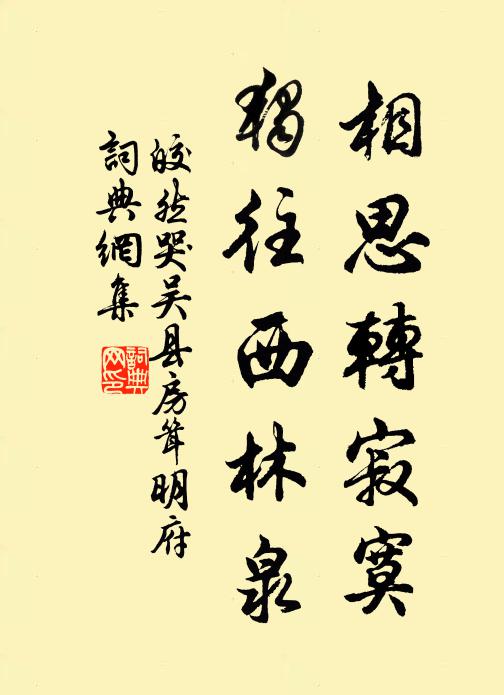 相思轉寂寞
獨往西林泉
皎然哭吴县房聳明府
詞典網集
詞典
网印